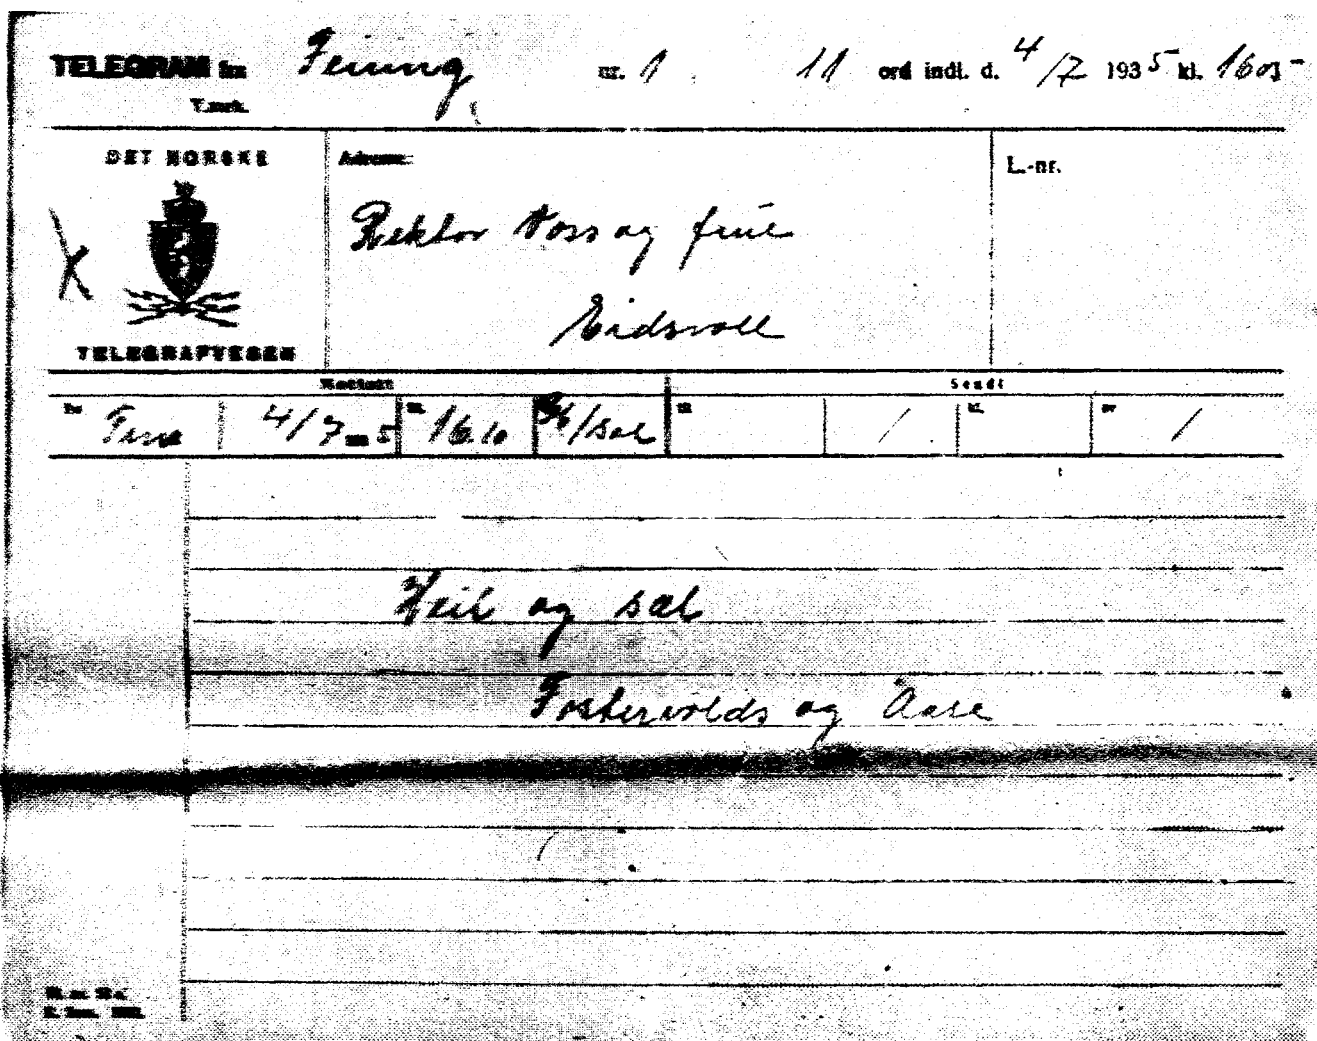 TELEGRAM fra Feiring nr. 1 11 ord indl. d. 4/7 1935 kl. 1605-
T.merk.
DET NORSKE
TELEGRAFVESEN
Adresse:
Rektor Voss og frue
Eidsvoll
L.-nr.
Mottatt
Sendt
fra 4/7 5 kl. 16.10
til / kl. av /
Heil og sæl
Fostervolds og Aase